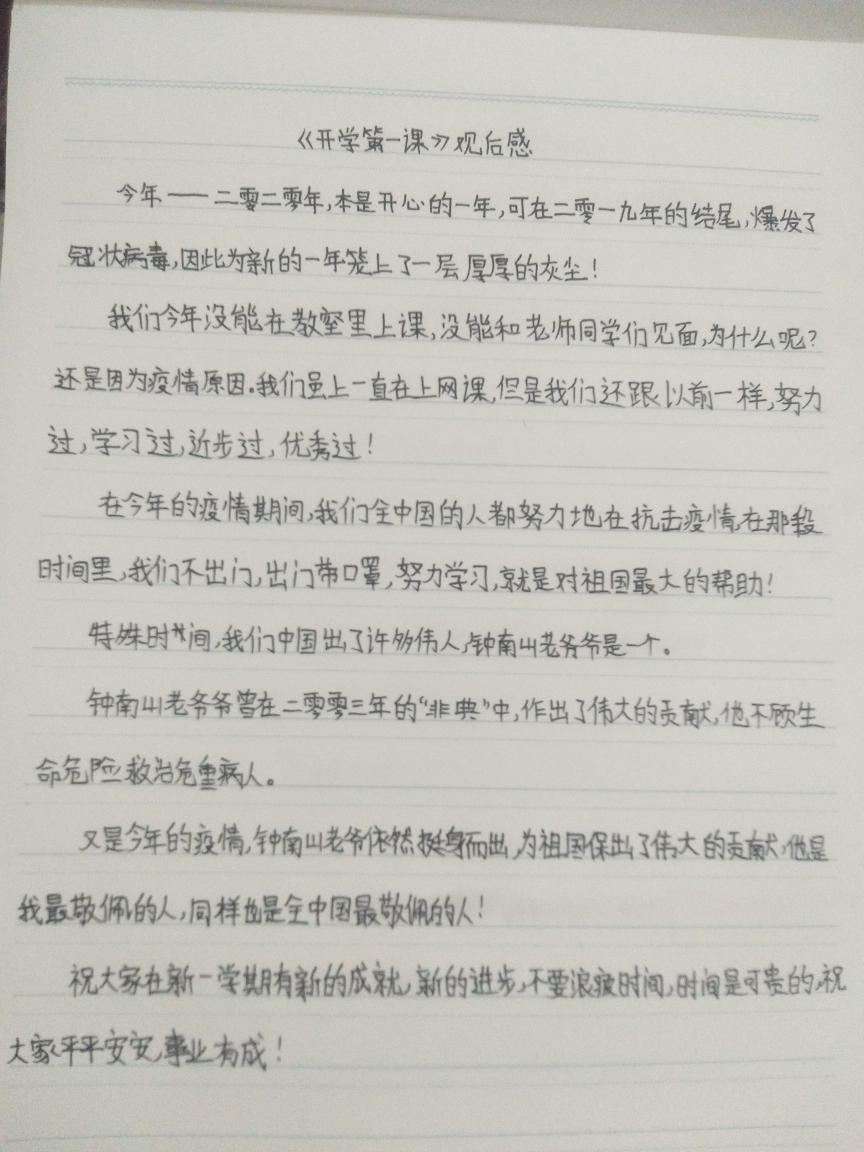 《开学第一课》观后感
今年——二零二零年,本是开心的一年,可在二零一九年的结尾,爆发了
冠状病毒,因此为新的一年笼上了一层厚厚的灰尘!
我们今年没能在教室里上课,没能和老师同学们见面,为什么呢?
还是因为疫情原因.我们虽上一直在上网课,但是我们还跟以前一样,努力
过,学习过,近步过,优秀过!
在今年的疫情期间,我们全中国的人都努力地在抗击疫情,在那段
时间里,我们不出门,出门带口罩,努力学习,就是对祖国最大的帮助!
特殊时间,我们中国出了许多伟人,钟南山老爷爷是一个。
钟南山老爷爷曾在二零零三年的“非典”中,作出了伟大的贡献,他不顾生
命危险救治危重病人。
又是今年的疫情,钟南山老爷依然挺身而出,为祖国保出了伟大的贡献,他是
我最敬佩的人,同样也是全中国最敬佩的人!
祝大家在新一学期有新的成就,新的进步,不要浪疲时间,时间是可贵的,祝
大家平平安安,事业有成!